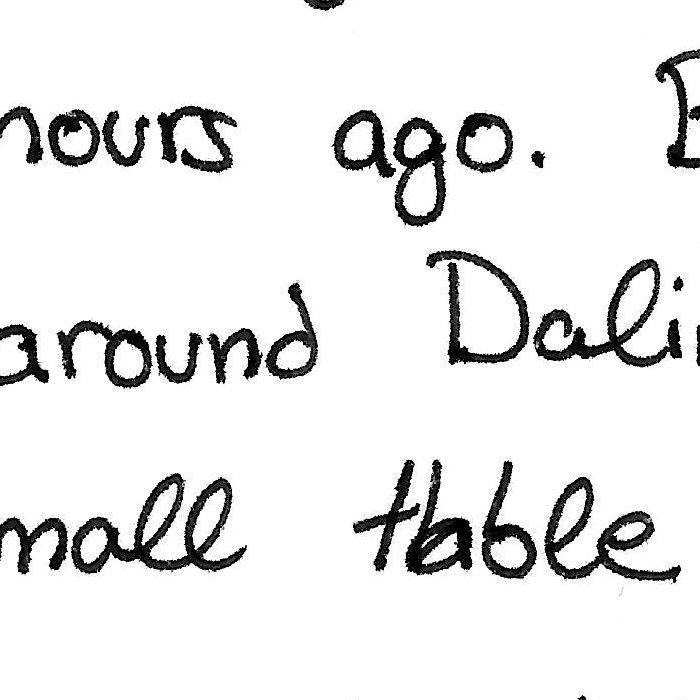 hours ago.
around Dalin
small table